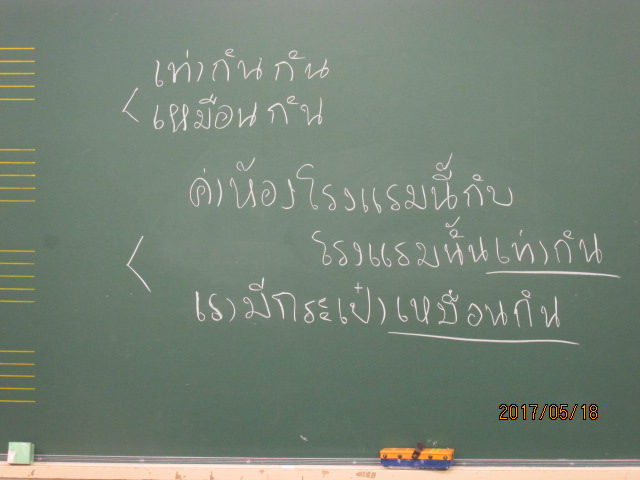 เท่ากันกัน
เหมือนกัน
ค่าห้องโรงแรมนี้กับ
โรงแรมนั้นเท่ากัน
เรามีกระเป๋าเหมือนกัน
2017/05/18